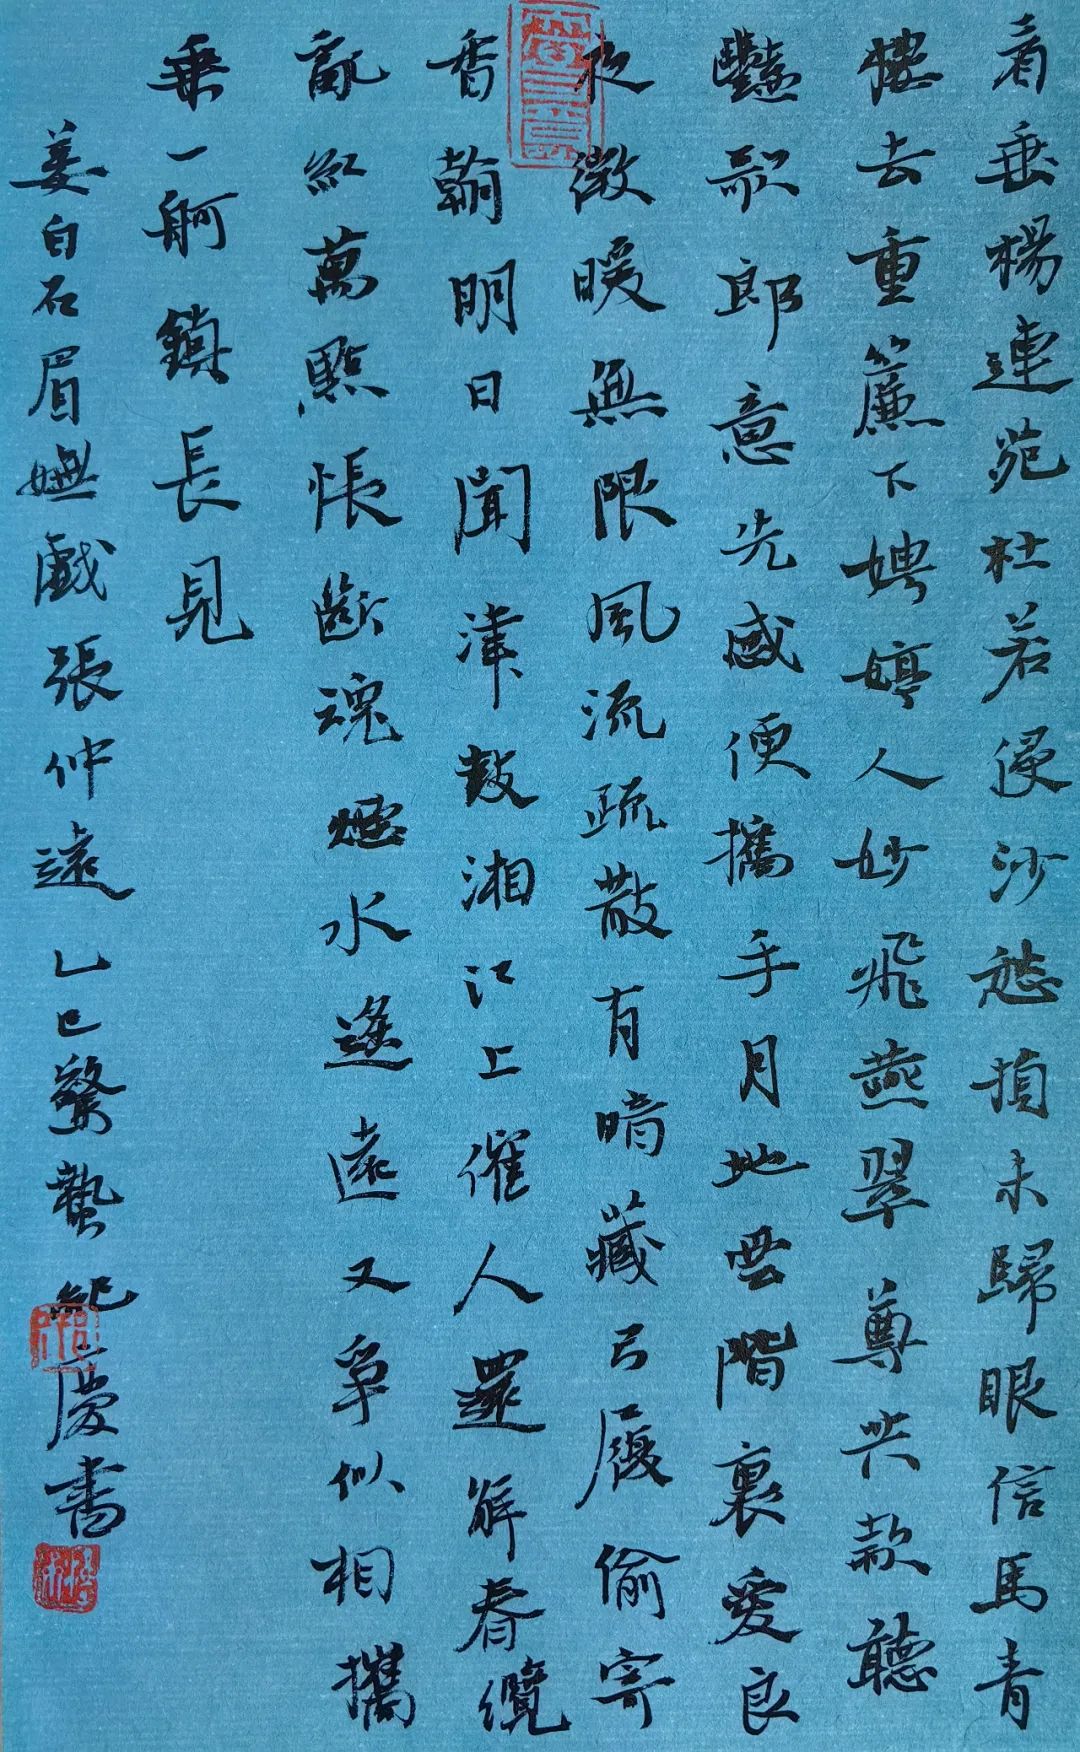 看垂楊連苑杜若侵沙愁損未歸眼信馬青
樓去重簾下娉婷人妙飛燕翠尊共款聽
豔歌郎意先感便攜手月地雲階裏愛良
夜微暖無限風流疏散有暗藏弓履偷寄
香翰明日聞津鼓湘江上催人還解春纜
亂紅萬點悵斷魂煙水遙遠又爭似相攜
乘一舸鎮長見
姜白石眉嫵戲張仲遠 乙巳驚蟄紀慶書